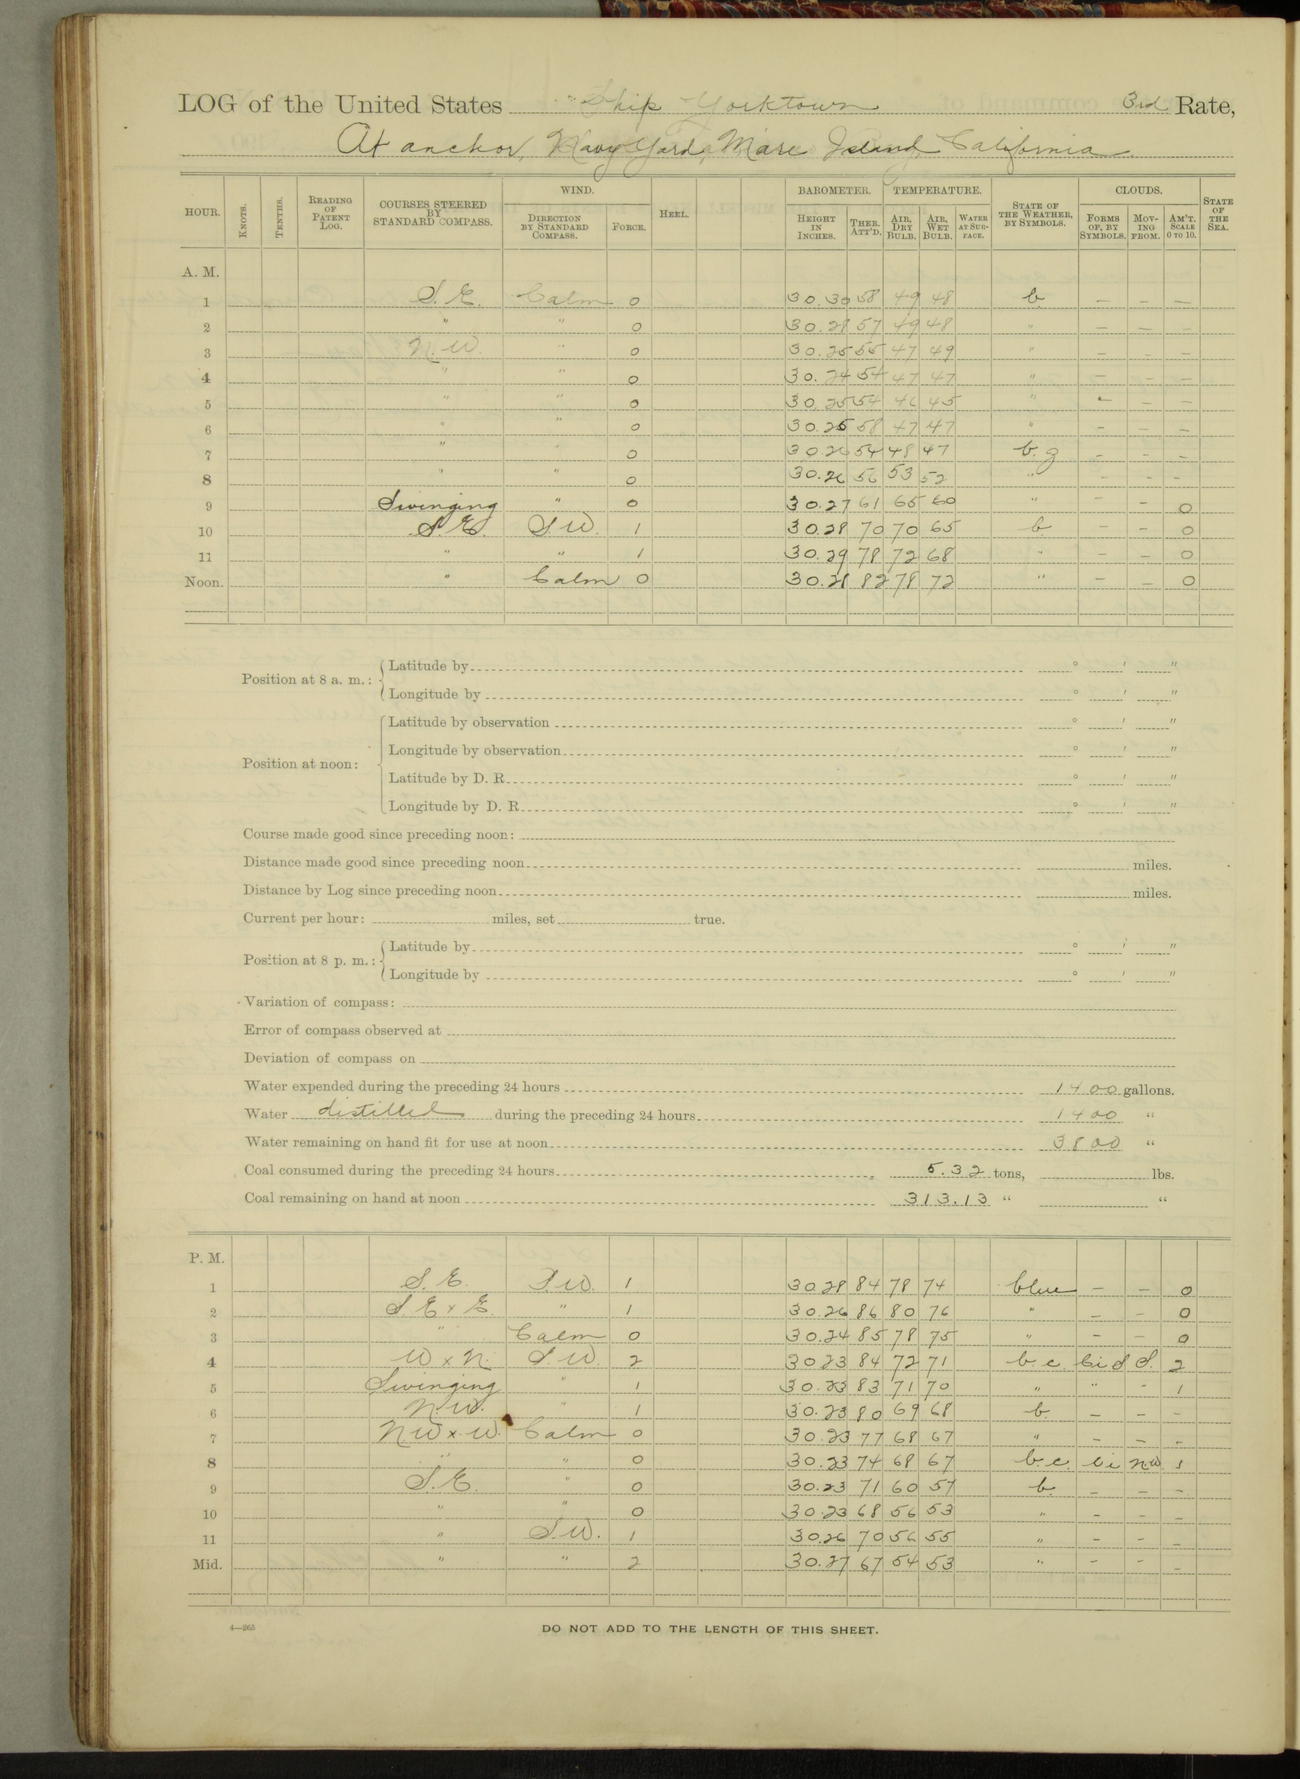 LOG of the United States Ship Yorktown 3rd Rate,
At anchor, Navy Yard, Mare Island, California.
HOUR. KNOTS. TENTHS. READING OF PATENT LOG. COURSES STEERED BY STANDARD COMPASS. WIND. DIRECTION BY STANDARD COMPASS. FORCE. HEEL. BAROMETER. HEIGHT IN INCHES. THER. ATT'D. TEMPERATURE. AIR, DRY BULB. AIR, WET BULB. WATER AT SURFACE. STATE OF THE WEATHER, BY SYMBOLS. CLOUDS. FORMS OF, BY SYMBOLS. MOVING FROM. AM'T. SCALE 0 TO 10. STATE OF THE SEA.
A. M.
1 S.E. Calm 0 30.30 58 49 48 b — — —
2 " " 0 30.28 57 49 48 " — — —
3 N.W. " 0 30.25 55 47 49 " — — —
4 " " 0 30.24 54 47 47 " — — —
5 " " 0 30.25 54 46 45 " — — —
6 " " 0 30.25 58 47 47 " — — —
7 " " 0 30.26 54 48 47 b.g — — —
8 " " 0 30.26 56 53 52 " — — —
9 Swinging " 0 30.27 61 65 60 " — — 0
10 S.E. S.W. 1 30.28 70 70 65 b — — 0
11 " " 1 30.29 78 72 68 " — — 0
Noon. " Calm 0 30.28 82 78 72 " — — 0
Position at 8 a. m.: Latitude by ° ′ ″
Longitude by ° ′ ″
Position at noon: Latitude by observation ° ′ ″
Longitude by observation ° ′ ″
Latitude by D. R. ° ′ ″
Longitude by D. R. ° ′ ″
Course made good since preceding noon:
Distance made good since preceding noon miles.
Distance by Log since preceding noon miles.
Current per hour: miles, set true.
Position at 8 p. m.: Latitude by ° ′ ″
Longitude by ° ′ ″
Variation of compass:
Error of compass observed at
Deviation of compass on
Water expended during the preceding 24 hours 1400 gallons.
Water distilled during the preceding 24 hours 1400 "
Water remaining on hand fit for use at noon 3800 "
Coal consumed during the preceding 24 hours 5.32 tons, lbs.
Coal remaining on hand at noon 313.13 " "
P. M.
1 S.E. S.W. 1 30.28 84 78 74 blue — — 0
2 S E x E. " 1 30.26 86 80 76 " — — 0
3 " Calm 0 30.24 85 78 75 " — — 0
4 W x N. S.W. 2 30.23 84 72 71 b.c. Ci S S. 2
5 Swinging " 1 30.23 83 71 70 " " - 1
6 N.W. " 1 30.23 80 69 68 b — — -
7 N W x W. Calm 0 30.23 77 68 67 " — — -
8 " " 0 30.23 74 68 67 b.c. Ci N.W. 1
9 S.E. " 0 30.23 71 60 57 b. — — -
10 " " 0 30.23 68 56 53 " — — -
11 " S.W. 1 30.26 70 56 55 " — — -
Mid. " " 2 30.27 67 54 53 " — — -
4—265
DO NOT ADD TO THE LENGTH OF THIS SHEET.